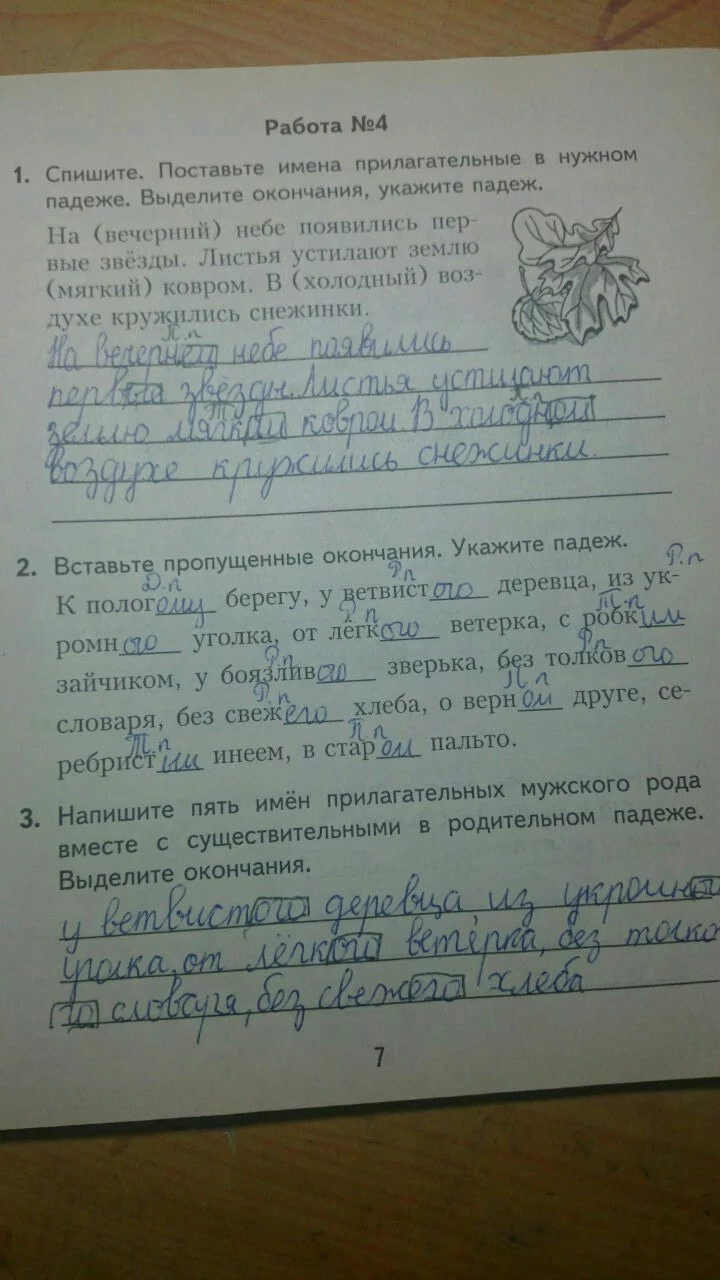 Работа №4
1. Спишите. Поставьте имена прилагательные в нужном
падеже. Выделите окончания, укажите падеж.
На (вечерний) небе появились пер-
вые звёзды. Листья устилают землю
(мягкий) ковром. В (холодный) воз-
духе кружились снежинки.
П.п
На вечернем небе появились
первые звёзды. Листья устилают
Т.п П.п
землю мягким ковром. В холодном
воздухе кружились снежинки.
2. Вставьте пропущенные окончания. Укажите падеж.
Д.п Р.п Р.п
К пологому берегу, у ветвистого деревца, из ук-
Р.п Т.п
ромного уголка, от лёгкого ветерка, с робким
Р.п Р.п
зайчиком, у боязливого зверька, без толкового
Р.п П.п
словаря, без свежего хлеба, о верном друге, се-
Т.п П.п
ребристым инеем, в старом пальто.
3. Напишите пять имён прилагательных мужского рода
вместе с существительными в родительном падеже.
Выделите окончания.
у ветвистого деревца из укромного
уголка, от лёгкого ветёрка, без толко
го словаря, без свежего хлеба
7